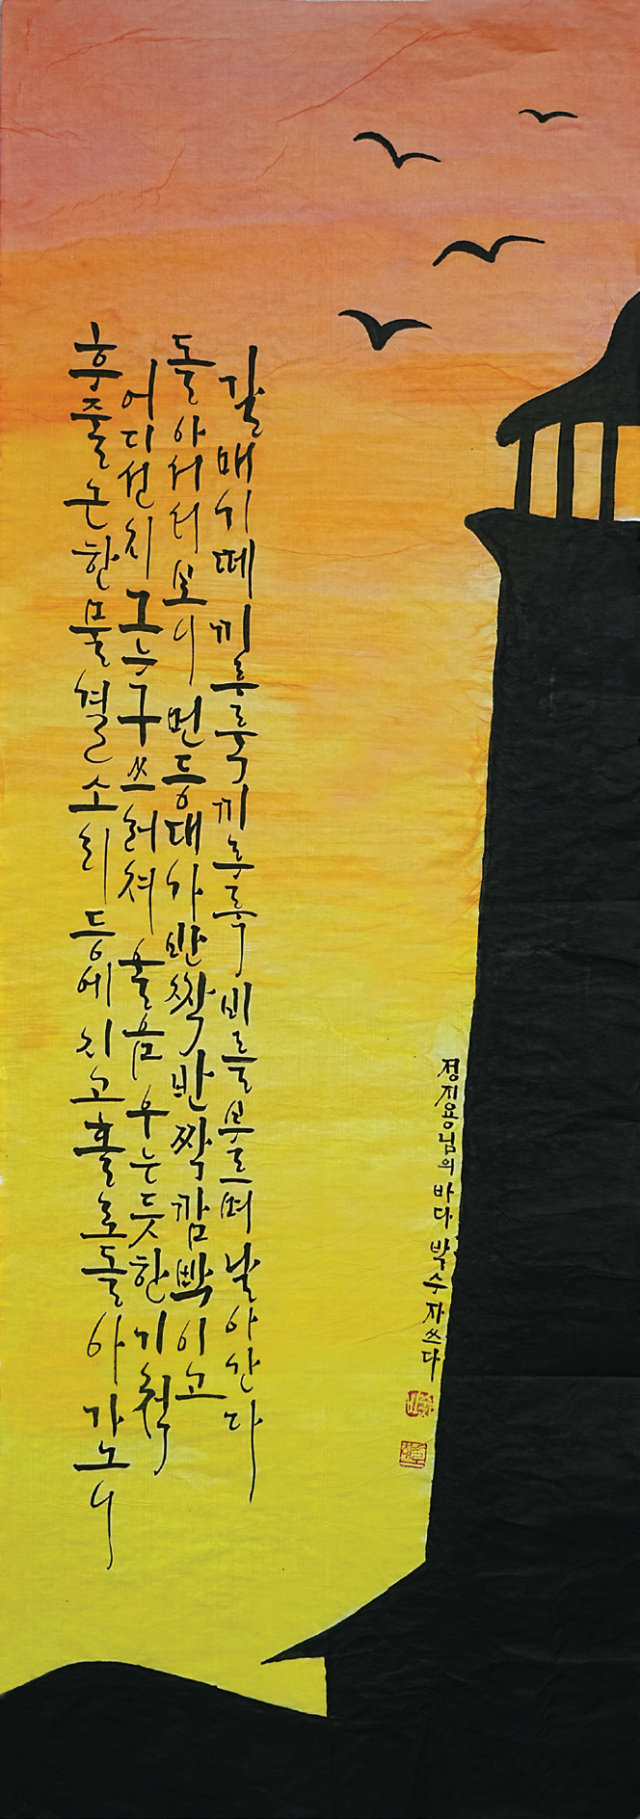 후줄근한 물결소리 등에 지고 홀로 돌아가노니
어디선지 그 누구 쓰러져 울음 우는 듯한 기척
돌아서서 보니 먼 등대가 반짝반짝 깜박이고
갈매기떼 끼루룩 끼루룩 비를 부르며 날아간다
정지용님의 바다 박수자 쓰다